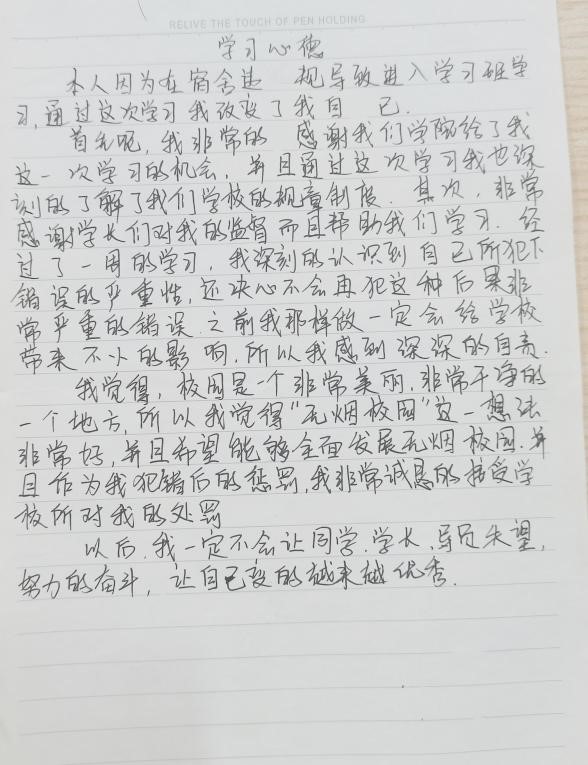 RELIVE THE TOUCH OF PEN HOLDING
学习心德
本人因为在宿舍违 规导致进入学习班学
习,通过这次学习我改变了我自 己.
首先呢,我非常的 感谢我们学院给了我
这一次学习的机会,并且通过这次学习我也深
刻的了解了我们学校的规章制度.其次,非常
感谢学长们对我的监督而且帮助我们学习.经
过了一周的学习,我深刻的认识到自己所犯下
错误的严重性,还决心不会再犯这种后果非
常严重的错误.之前我那样做一定会给学校
带来不小的影响,所以我感到深深的自责.
我觉得,校园是一个非常美丽,非常干净的
一个地方,所以我觉得“无烟校园”这一想法
非常好,并且希望能够全面发展无烟校园.并
且作为我犯错后的惩罚,我非常诚恳的接受学
校所对我的处罚
以后.我一定不会让同学.学长.导员失望,
努力的奋斗,让自己变的越来越优秀.